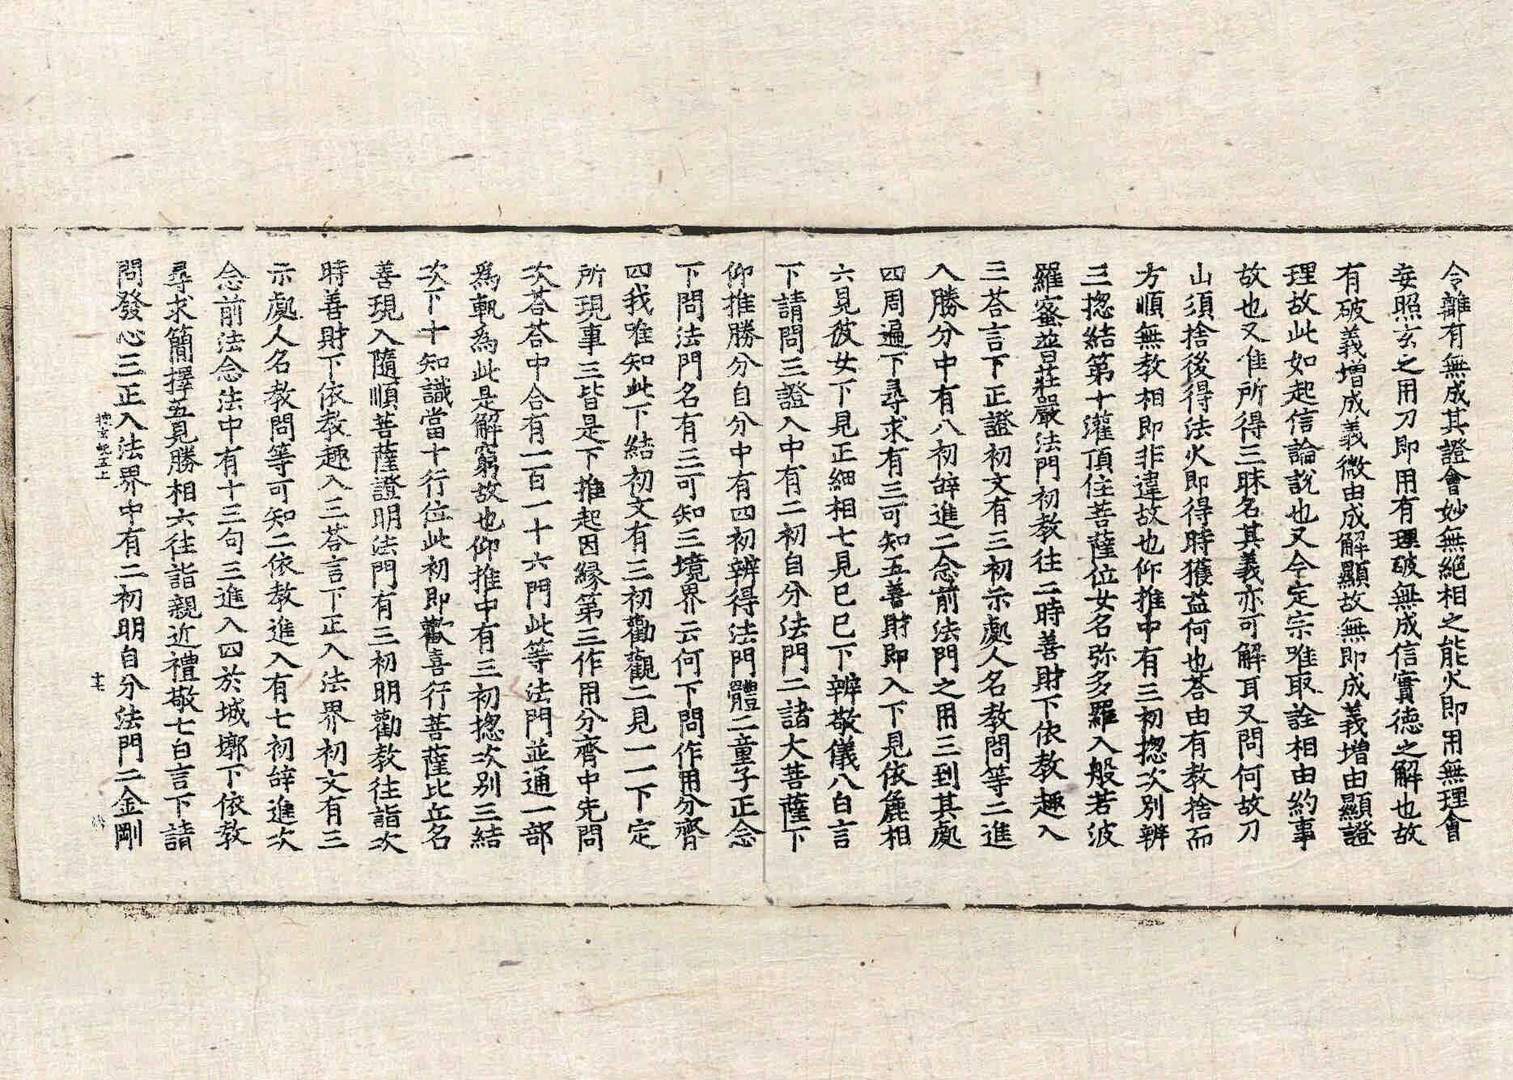 令離有無成其證會妙無絕相之能火即用無理會
妄照玄之用刀即用有理破無成信實德之解也故
有破義增成義微由成解顯故無即成義增由顯證
理故此如起信論說也又今定宗唯取詮相由約事
故也又准所得三昧名其義亦可解耳又問何故刀
山須捨後得法火即得時獲益何也荅由有教捨而
方順無教相即非違故也仰推中有三初捴次別辨
三捴結第十灌頂住菩薩位女名弥多羅入般若波
羅蜜普莊嚴法門初教往二時善財下依教趣入
三荅言下正證初文有三初示處人名教問等二進
入勝分中有八初辞進二念前法門之用三到其處
四周遍下尋求有三可知五善財即入下見依麁相
六見彼女下見正細相七見已已下辨敬儀八白言
下請問三證入中有二初自分法門二諸大菩薩下
仰推勝分自分中有四初辨得法門體二童子正念
下問法門名有三可知三境界云何下問作用分齊
四我唯知此下結初文有三初勸觀二見一一下定
所現事三皆是下推起因緣第三作用分齊中先問
次荅荅中合有一百一十六門此等法門並通一部
為軌為此是解窮故也仰推中有三初捴次別三結
次下十知識當十行位此初即歡喜行菩薩比丘名
善現入隨順菩薩證明法門有三初明勸教往詣次
時善財下依教趣入三荅言下正入法界初文有三
示處人名教問等可知二依教進入有七初辞進次
念前法念法中有十三句三進入四於城墎下依教
尋求簡擇五見勝相六往詣親近禮敬七白言下請
問發心三正入法界中有二初明自分法門二金剛